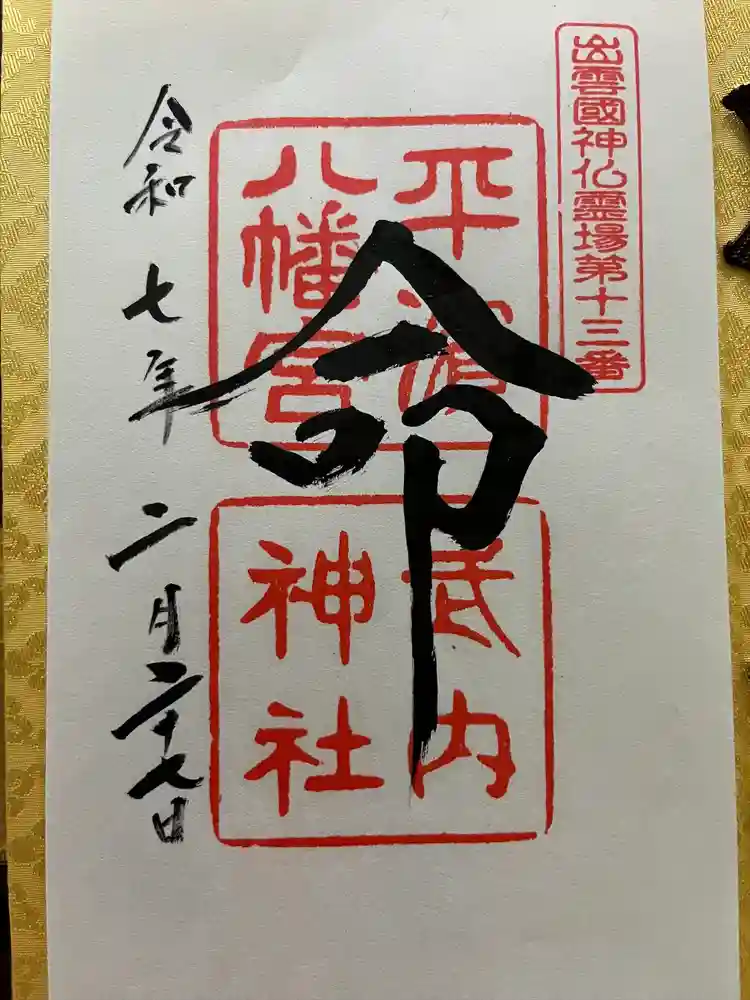 出雲國神仏霊場第十三番
平濱
八幡宮
武内
神社
命
令和七年二月二十七日